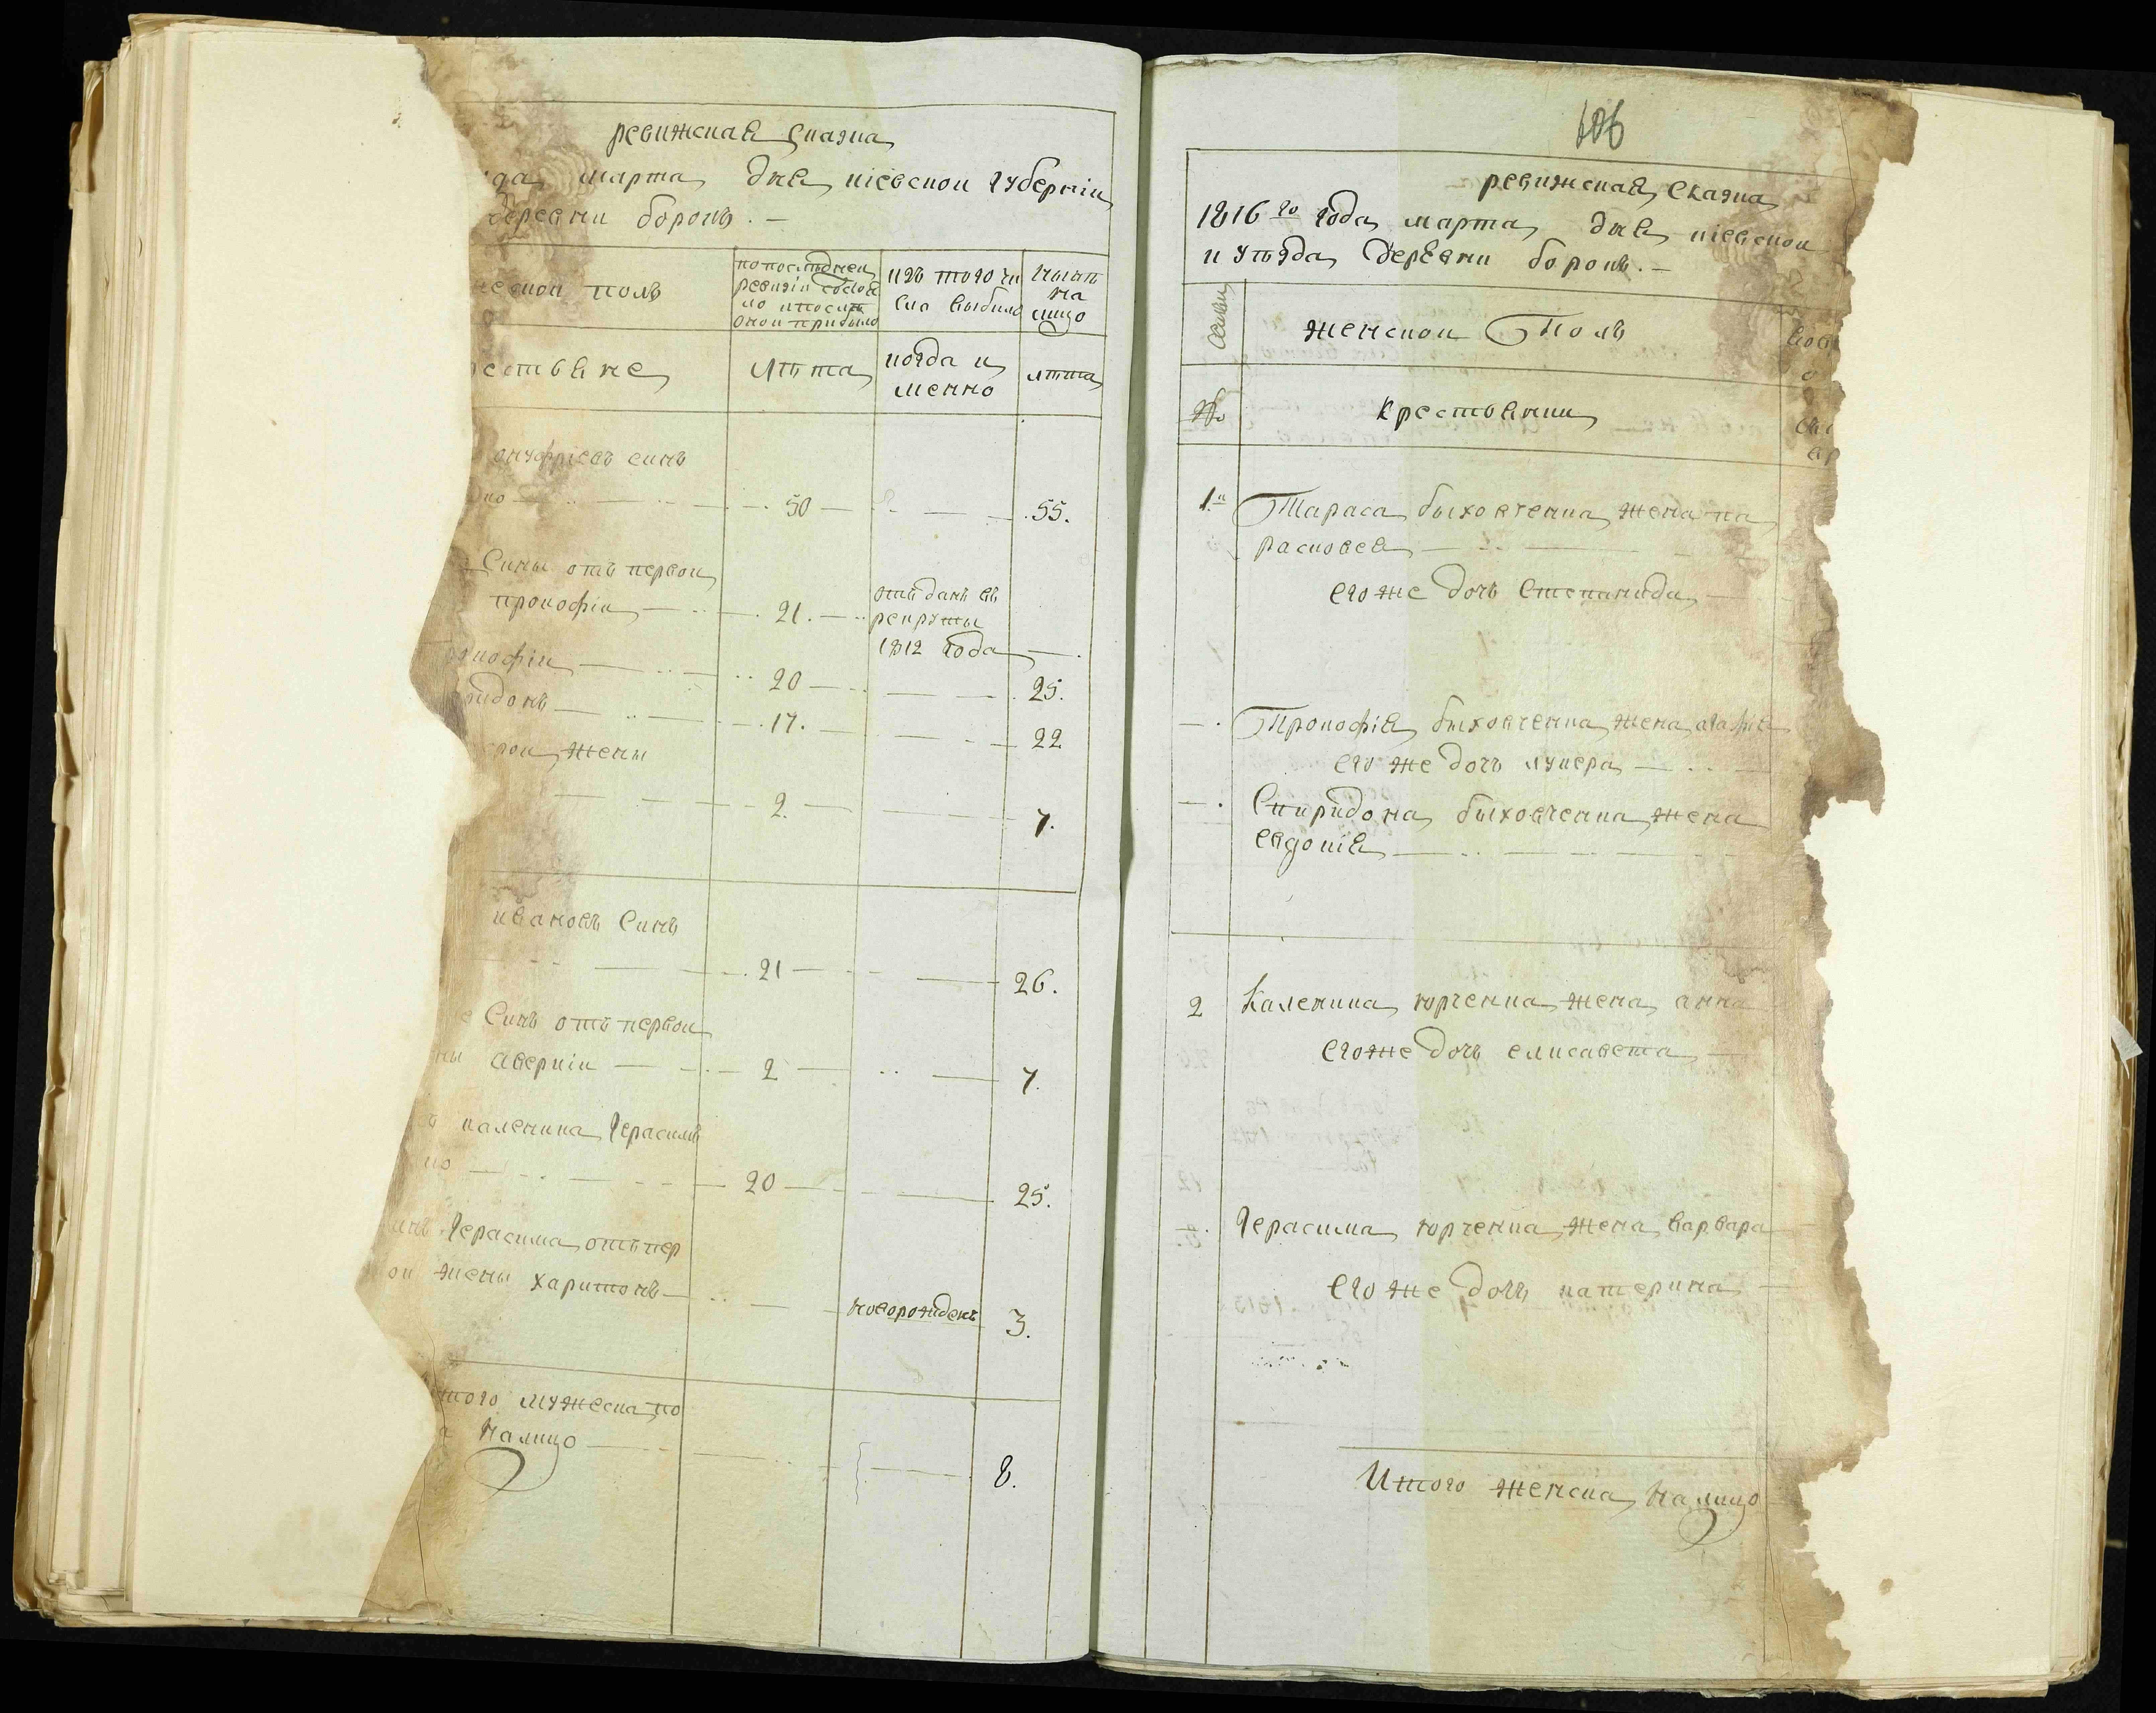 ревижская сказка
марта дня кіевской губерніи
деревни борокъ. —
поль
по последней
ревизіи состоя
ло и после
оной прибыло
изъ того чи
сла выбыло
ныне
на
лицо
лета
когда и
менно
лета
онуфріевъ синъ
50 — 55.
Сины отъ первой
прокофій — 21. —
отъданъ въ
рекруты
1812 года —
20 — 25.
17. — 22
жены
2. — 7.
ивановъ Синъ
21 — 26.
Синъ отъ первой
аверкій — 2 — 7.
каленика Герасимъ
20 — 25.
Герасима отъ пер
жены харитонъ — новорожденъ 3.
мужеска по
налицо — 8.
106
ревижская Сказка
1816го года марта дня кіевской
и уезда деревни борокъ. —
женской Поль
№
крестьянки
1.й Тараса быховченка жена па
расковея —
его же дочь Степанида —
— . Трокофія быховченка жена агафия
его же дочь лукера —
— . Спиридона быховченка жена
евдокія —
2 Каленика юрченка жена анна
его же дочь елисавета —
Герасима юрченка жена варвара
его же дочь катерина —
Итого женска налицо